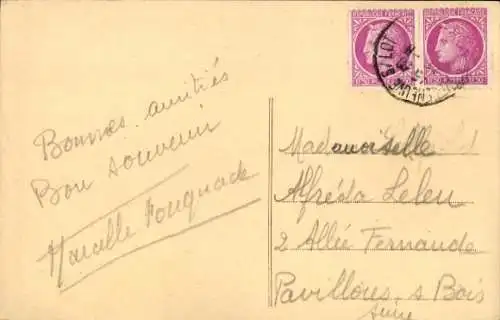 Bonnes amitiés
Bon souvenir
Marcelle Fouquade
S/ LOT
Mademoiselle
Alfréda Leleu
2 Allée Fernande
Pavillons s Bois
Seine